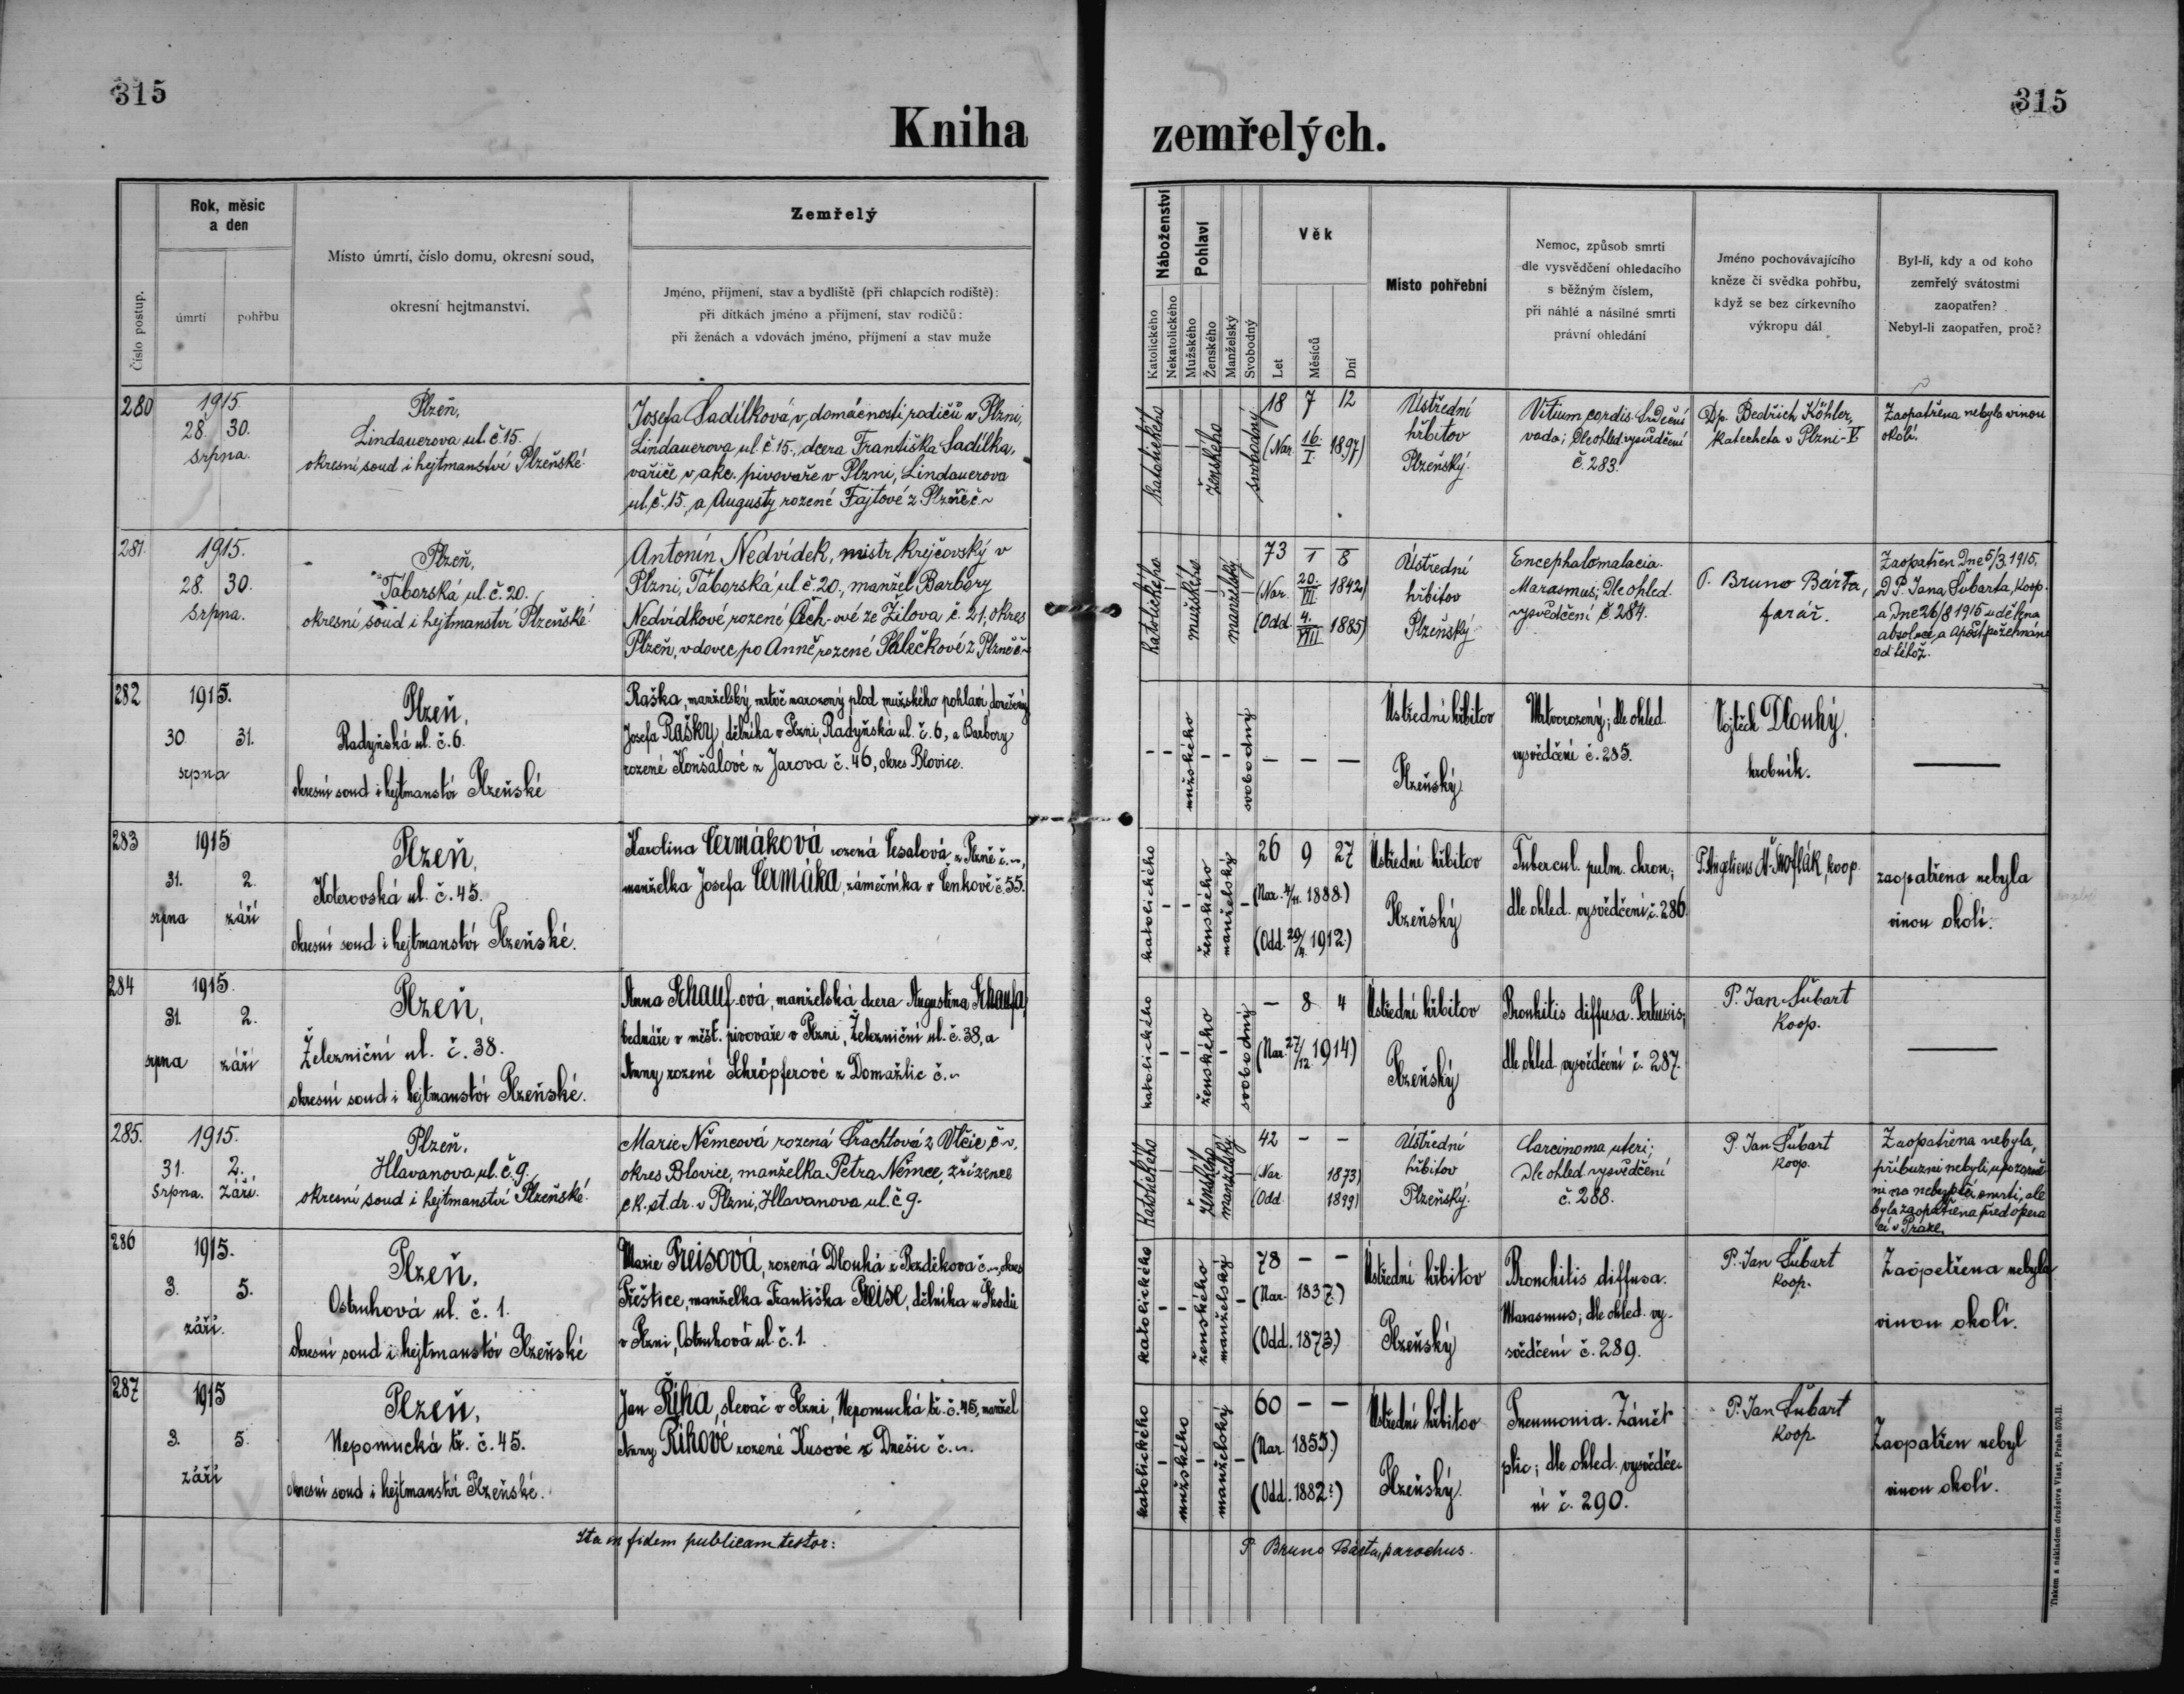 315
315
Kniha zemřelých.
Číslo postup.
Rok, měsíc
a den
úmrtí
pohřbu
Místo úmrtí, číslo domu, okresní soud,
okresní hejtmanství.
Zemřelý
Jméno, příjmení, stav a bydliště (při chlapcích rodiště):
při dítkách jméno a příjmení, stav rodičů:
při ženách a vdovách jméno, příjmení a stav muže
Náboženství
Katolického
Nekatolického
Pohlaví
Mužského
Ženského
Manželský
Svobodný
Věk
Let
Měsíců
Dní
Místo pohřební
Nemoc, způsob smrti
dle vysvědčení ohledacího
s běžným číslem,
při náhlé a násilné smrti
právní ohledání
Jméno pochovávajícího
kněze či svědka pohřbu,
když se bez církevního
výkropu dál
Byl-li, kdy a od koho
zemřelý svátostmi
zaopatřen?
Nebyl-li zaopatřen, proč?
280
1915.
28. 30.
srpna.
Plzeň,
Lindauerova ul. č. 15.
okresní soud i hejtmanství Plzeňské.
Josefa Sadílková, v domácnosti rodičů v Plzni,
Lindauerova ul. č. 15., dcera Františka Sadílka,
vařiče v akc. pivovaře v Plzni, Lindauerova
ul. č. 15, a Augusty rozené Fajtové z Plzně č ~
katolického
ženského
svobodný
18 7 12
(Nar. 16./I. 1897)
Ústřední
hřbitov
Plzeňský.
Vitium cordis. Srdeční
vada; Dle ohled. vysvědčení
č. 283.
Dp. Bedřich Köhler,
Katecheta v Plzni-V
Zaopatřena nebyla vinou
okolí.
281.
1915.
28. 30.
srpna.
Plzeň,
Táborská ul. č. 20.
okresní soud i hejtmanství Plzeňské.
Antonín Nedvídek, mistr krejčovský v
Plzni, Táborská ul. č. 20., manžel Barbory
Nedvídkové, rozené Čech-ové ze Žilova č. 21, okres
Plzeň, vdovec po Anně rozené Palečkové z Plzně č ~
katolického
mužského
manželský
73 1 8
(Nar. 20./VII. 1842)
(Odd. 4./VIII 1885)
Ústřední
hřbitov
Plzeňský
Encephalomalacia.
Marasmus; Dle ohled.
vysvědčení č. 284.
P. Bruno Bárta,
farář.
Zaopatřen Dne 5/3. 1915,
D.P. Jana Šubarta, koop.
a Dne 26/8 1915 udělena
absoluce a Apošt. požehnání
od téhož.
282
1915.
30. 31.
srpna
Plzeň,
Radyňská ul. č. 6.
okresní soud i hejtmanství Plzeňské
Raška, manželský, mrtvě narozený plod mužského pohlaví, donešený,
Josefa Rašky, dělníka v Plzni, Radyňská ul. č. 6, a Barbory
rozené Konšalové z Jarova č. 46, okres Blovice.
mužského
svobodný
— — —
Ústřední hřbitov
Plzeňský
Mrtvorozený; dle ohled.
vysvědčení č. 285.
Vojtěch Dlouhý,
hrobník.
—
283
1915
31. 2.
srpna září
Plzeň,
Koterovská ul. č. 45.
okresní soud i hejtmanství Plzeňské.
Karolina Čermáková rozená Česalová z Plzně č. ~,
manželka Josefa Čermáka, zámečníka v Čenkově č. 55.
katolického
ženského
manželský
26 9 27
(Nar. 4/11. 1888.)
(Odd. 1912.)
Ústřední hřbitov
Plzeňský
Tubercul. pulm. chron;
dle ohled. vysvědčení č. 286.
koop.
zaopatřena nebyla
vinou okolí.
284
1915.
31. 2.
srpna září
Plzeň,
Železniční ul. č. 38.
okresní soud i hejtmanství Plzeňské.
Anna Schauf-ová, manželská dcera Augustina Schaufa,
bednáře v měšť. pivovaře v Plzni, Železniční ul. č. 38, a
Anny rozené Schröpferové z Domažlic č. ~
katolického
ženského
svobodný
— 8 4
(Nar. 27/12. 1914)
Ústřední hřbitov
Plzeňský
Bronhitis diffusa. Pertussis;
dle ohled. vysvědčení č. 287.
P. Jan Šubart
Koop.
—
285.
1915.
31. 2.
Srpna. Září.
Plzeň,
Hlavanova ul. č. 9.
okresní soud i hejtmanství Plzeňské.
Marie Němcová rozená Šrachtová z Vlčic č ~,
okres Blovice, manželka Petra Němce, zřízence
ck. st. dr. v Plzni, Hlavanova ul. č 9.
katolického
ženského
manželský
42 — —
(Nar. 1873)
(Odd. 1899)
Ústřední
hřbitov
Plzeňský.
Carcinoma uteri;
Dle ohled. vysvědčení
č. 288.
P. Jan Šubart
koop.
Zaopatřena nebyla,
příbuzní nebyli upozorně
ni na nebezpečí smrti, ale
byla zaopatřena před opera
cí v Praze.
286
1915.
3. 5.
září.
Plzeň,
Ostruhová ul. č. 1.
okresní soud i hejtmanství Plzeňské
Marie Preisová, rozená Dlouhá z Bezděkova č. ~, okres
Přeštice, manželka Františka Preise, dělníka u Škodů
v Plzni, Ostruhová ul. č. 1.
katolického
ženského
manželský
78 — —
(Nar. 1837.)
(Odd. 1873.)
Ústřední hřbitov
Plzeňský
Bronchitis diffusa.
Marasmus; dle ohled. vy-
svědčení č. 289.
P. Jan Šubart
koop.
Zaopetřena nebyla
vinou okolí.
287
1915
3. 5.
září
Plzeň,
Nepomucká tř. č. 45.
okresní soud i hejtmanství Plzeňské.
Jan Říha, slevač v Plzni, Nepomucká tř. č. 45, manžel
Anny Říhové rozené Kusové z Dnešic č. ~.
katolického
mužského
manželský
60 — —
(Nar. 1855.)
(Odd. 1882?)
Ústřední hřbitov
Plzeňský.
Pneumonia. Zánět
plic; dle ohled. vysvědče-
ní č. 290.
P. Jan Šubart
Koop.
Zaopatřen nebyl
vinou okolí.
Ita in fidem publicam testor:
P. Bruno Bárta, parochus.
Tiskem a nákladem družstva Vlast, Praha 570-II.